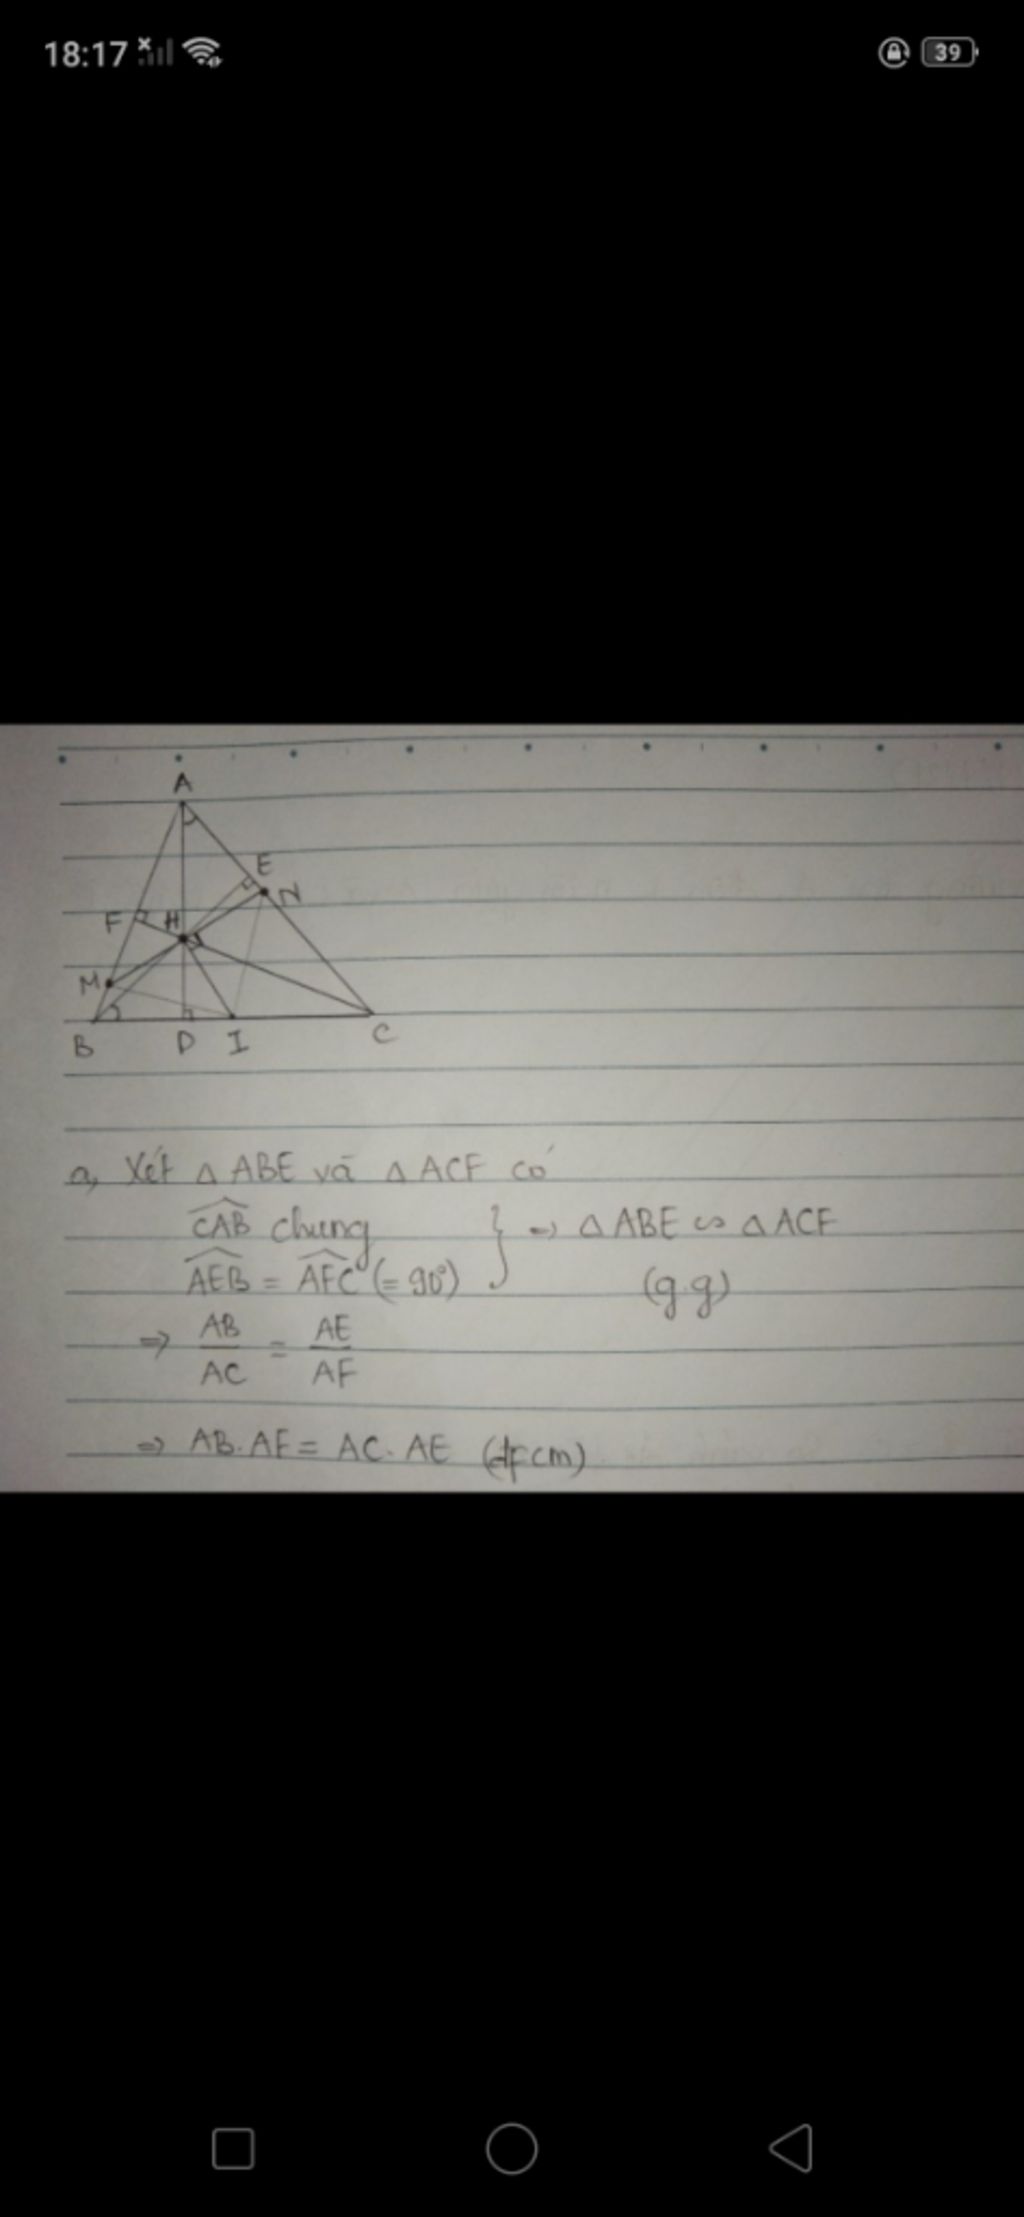 18:17
39
A
E
N
F H
M
B D I C
a, Xét △ ABE và △ ACF có
CAB chung } => △ ABE ∽ △ ACF
AEB = AFC (= 90°) (g.g)
=> AB/AC = AE/AF
=> AB.AF = AC.AE (đpcm)